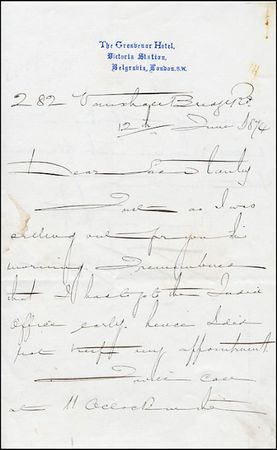 The Grosvenor Hotel,
Victoria Station,
Belgravia, London. S.W.
282 Vauxhall Bridge Rd.
12th June 1874
Dear
Just as I was
setting out for you this
morning I remembered
that I had to go to the India
Office early, hence I did
not keep my appointment.
I will call
at 11 O'Clock